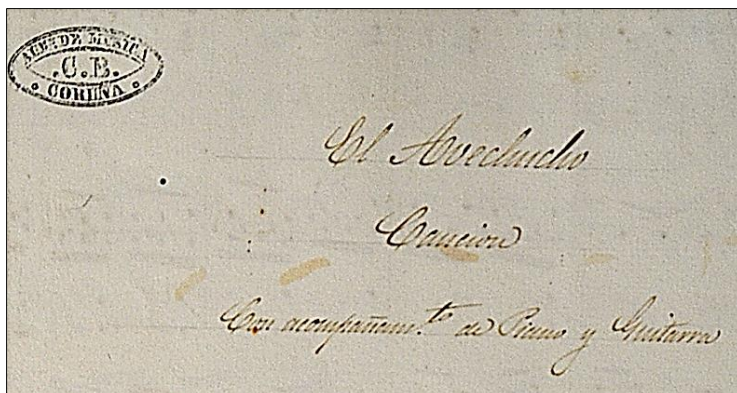 ALM. DE MUSICA
C.B.
CORUÑA
El Avechucho
Cancion
Con acompañam.to de Piano y Guitarra